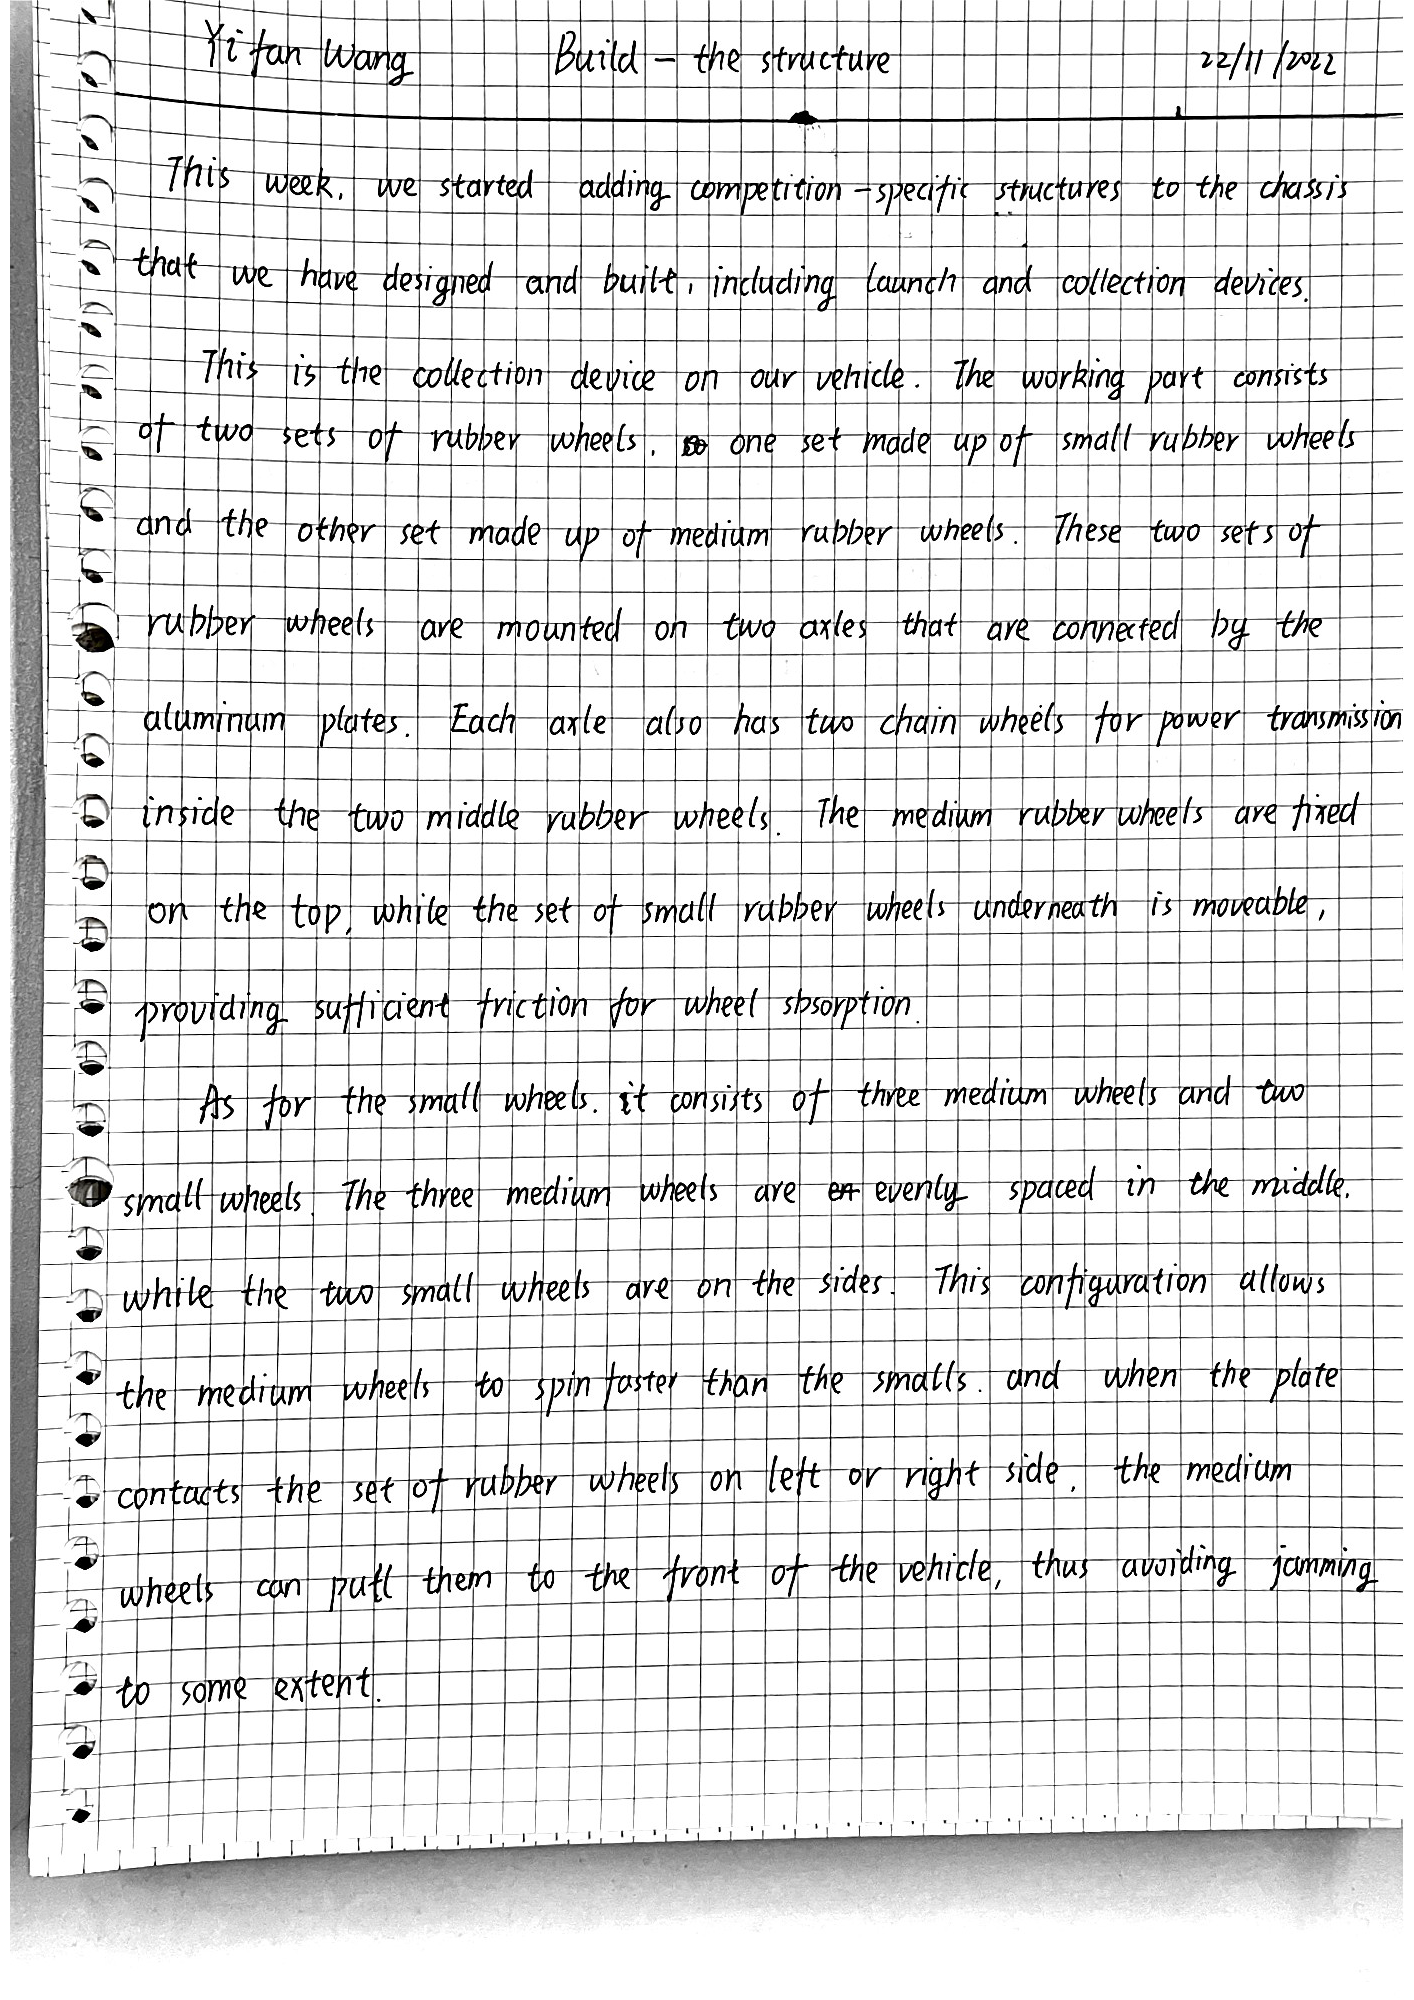 Yifan Wang Build - the structure 22/11/2022
This week, we started adding competition-specific structures to the chassis
that we have designed and built, including launch and collection devices.
This is the collection device on our vehicle. The working part consists
of two sets of rubber wheels, one set made up of small rubber wheels
and the other set made up of medium rubber wheels. These two sets of
rubber wheels are mounted on two axles that are connected by the
aluminum plates. Each axle also has two chain wheels for power transmission
inside the two middle rubber wheels. The medium rubber wheels are fixed
on the top, while the set of small rubber wheels underneath is moveable,
providing sufficient friction for wheel sbsorption.
As for the small wheels. it consists of three medium wheels and two
small wheels. The three medium wheels are evenly spaced in the middle.
while the two small wheels are on the sides. This configuration allows
the medium wheels to spin faster than the smalls. and when the plate
contacts the set of rubber wheels on left or right side, the medium
wheels can pull them to the front of the vehicle, thus avoiding jamming
to some extent.